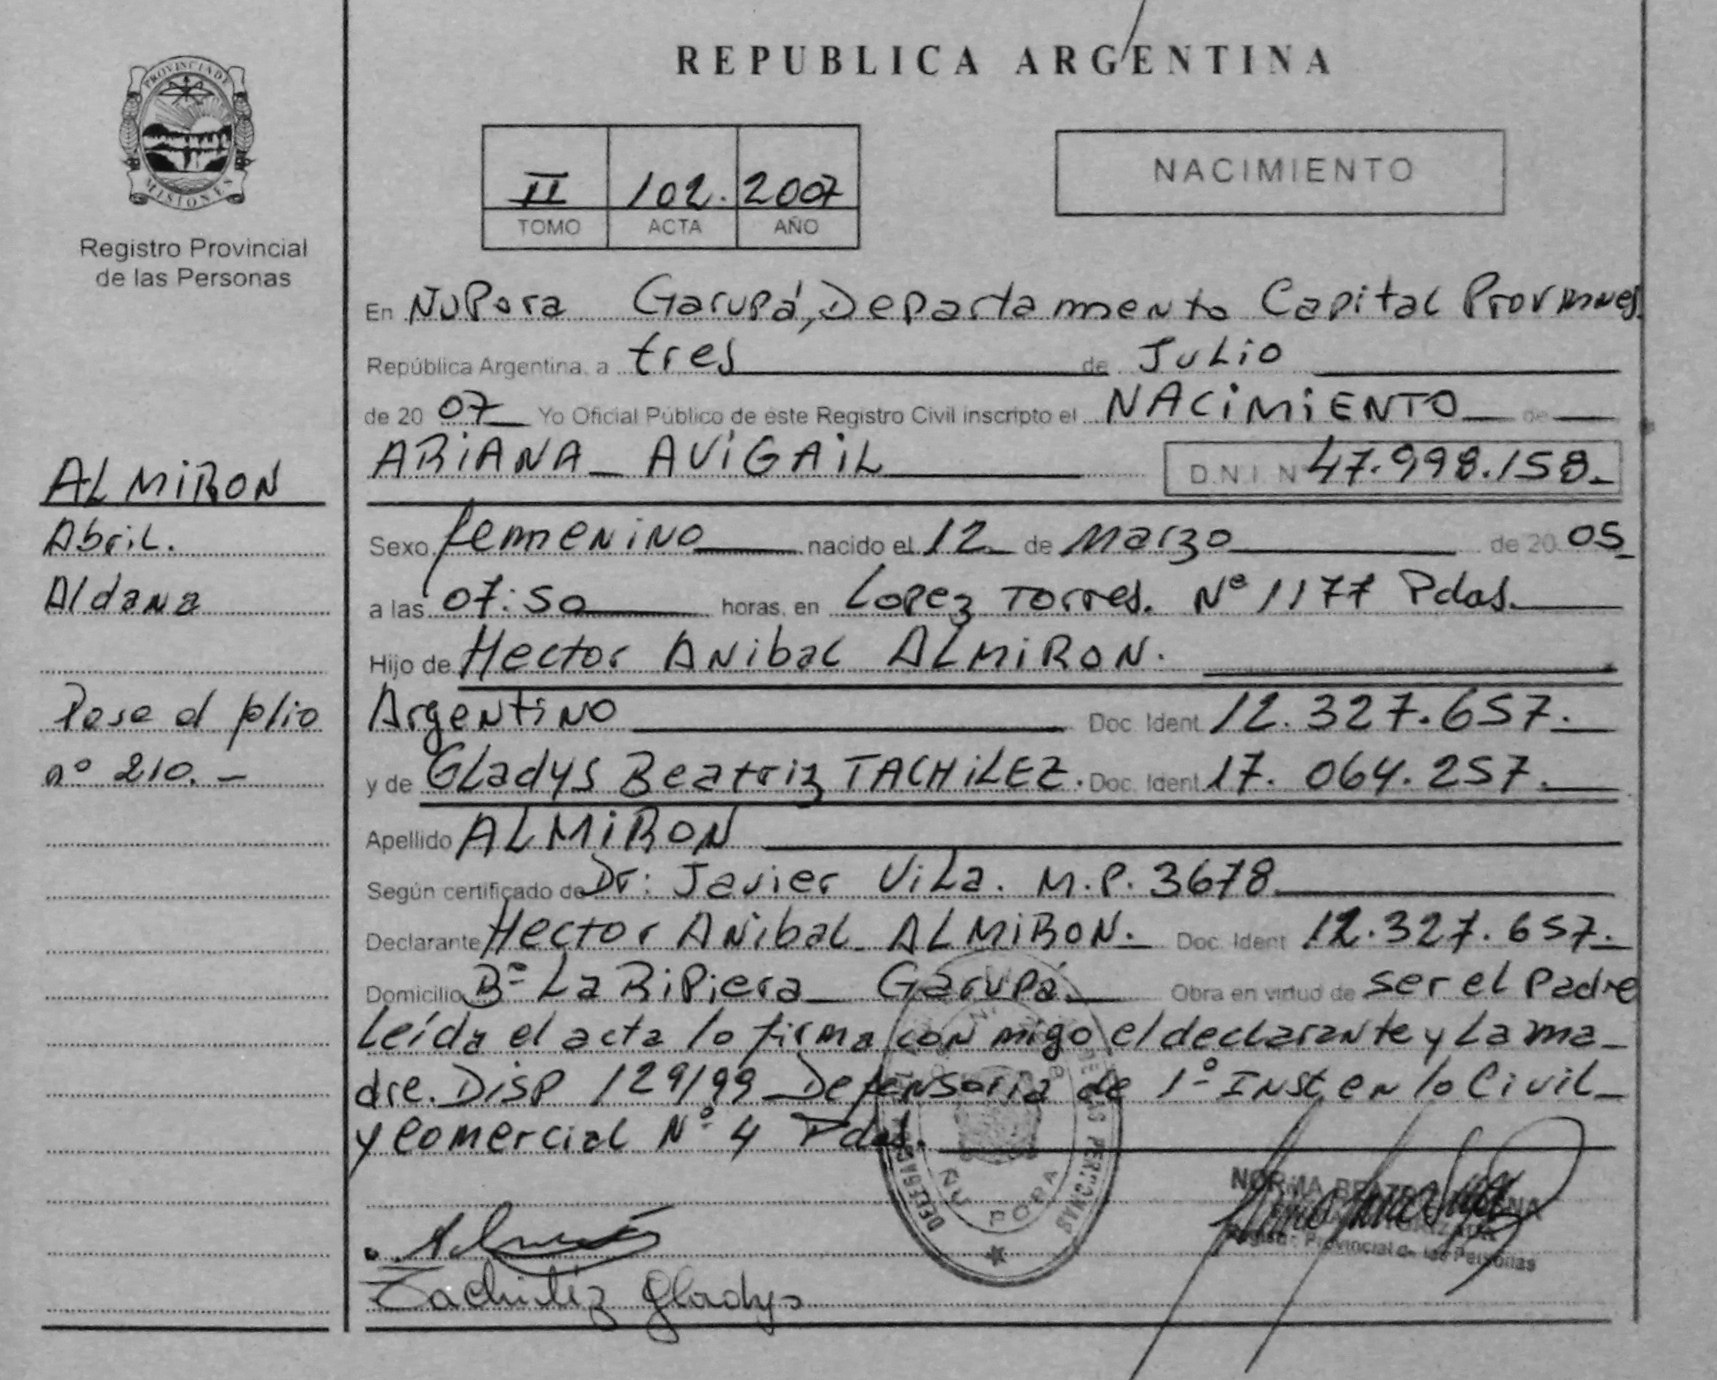 REPUBLICA ARGENTINA
PROVINCIA DE
MISIONES
Registro Provincial
de las Personas
II 102. 2007
TOMO ACTA AÑO
NACIMIENTO
En Nu Pora Garupá, Departamento Capital
República Argentina, a tres de Julio
de 2007 Yo Oficial Público de este Registro Civil inscripto el NACIMIENTO de
ARIANA AVIGAIL D.N.I. N 47.998.158.
Sexo femenino nacido el 12 de Marzo de 2005
a las 07:50 horas, en Lopez Torres. Nº 1177 Pdas.
Hijo de Hector Anibal ALMIRON.
Argentino Doc. Ident 12.327.657.
y de Gladys Beatriz TACHILEZ. Doc. Ident 17.064.257.
Apellido ALMIRON
Según certificado de Dr: Javier Vila. M.P. 3678
Declarante Hector Anibal ALMIRON. Doc. Ident 12.327.657.
Domicilio Bº La Ripiera Garupá Obra en virtud de ser el Padre
Leída el acta lo firma con migo el declarante y La ma_
dre. Disp 129/99 Defensoria de 1º Inst en lo Civil
y comercial Nº 4 Pdas.
ALMIRON
Abril.
Aldana
Pase al folio
nº 210. -
ÑU PORA
PERSONAS
NORMA
Provincial de las Personas
Tachiléz Gladys